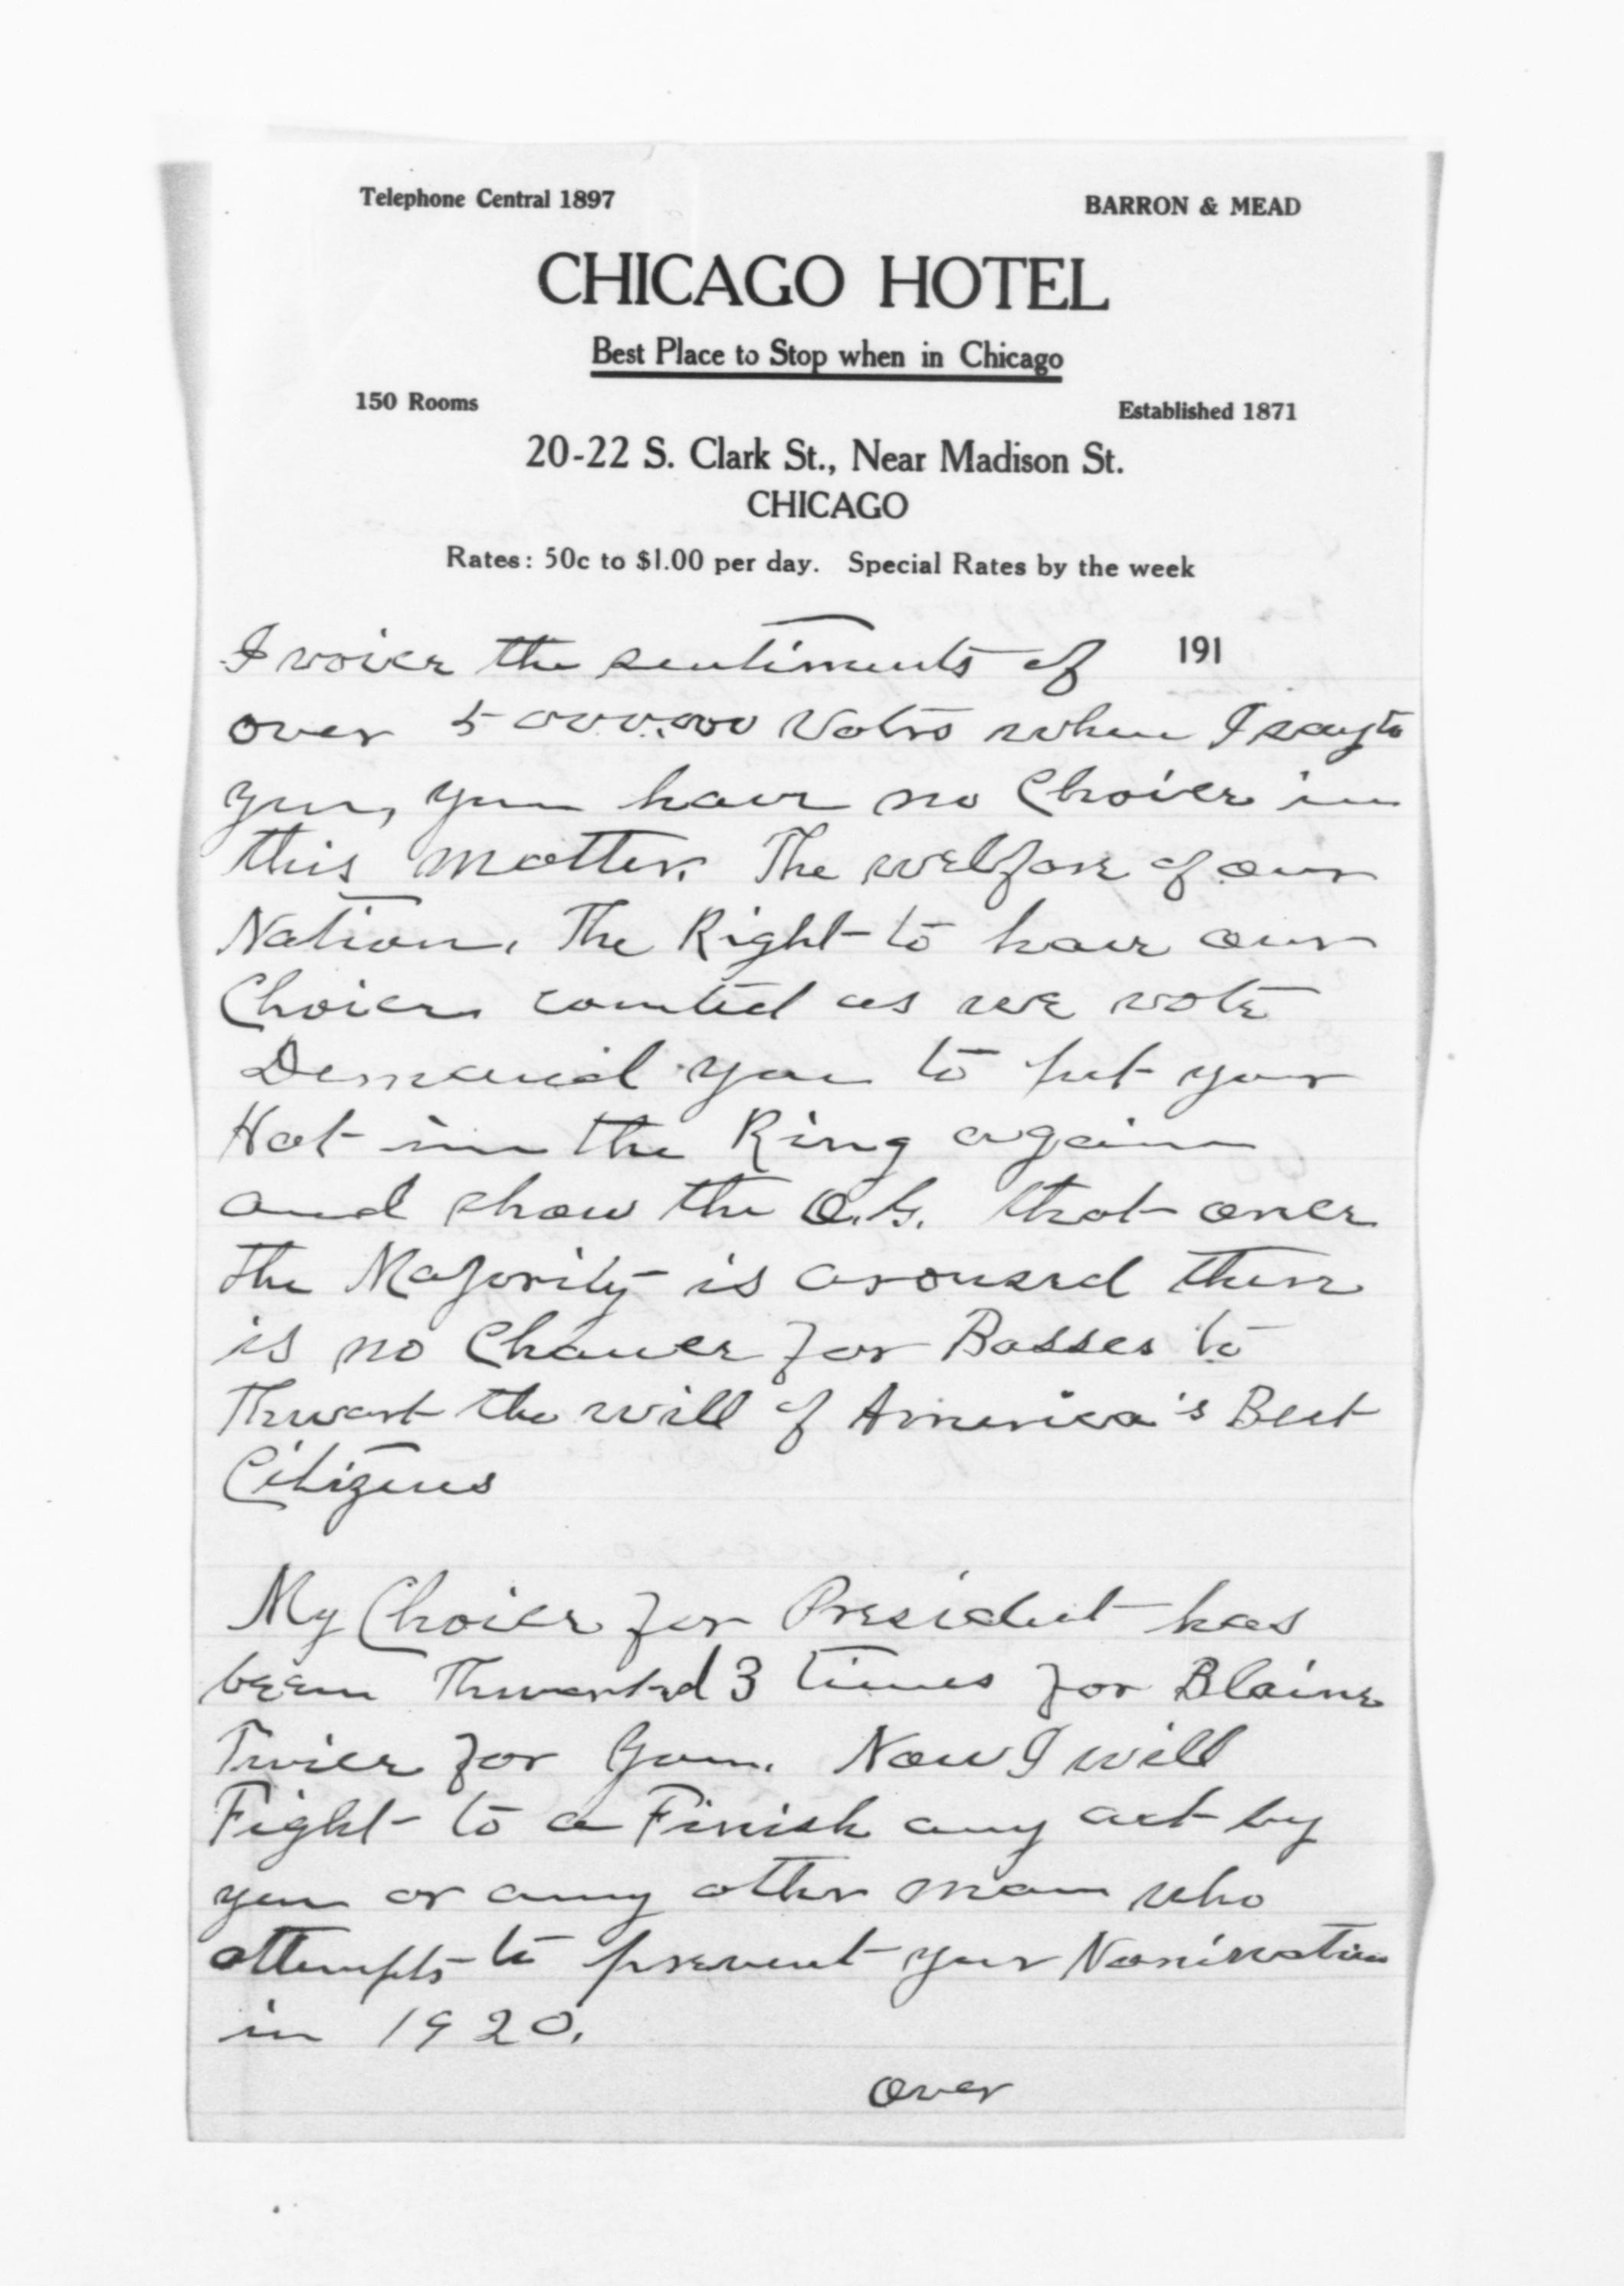 Telephone Central 1897
BARRON & MEAD
CHICAGO HOTEL
Best Place to Stop when in Chicago
150 Rooms
Established 1871
20-22 S. Clark St., Near Madison St.
CHICAGO
Rates: 50c to $1.00 per day. Special Rates by the week
191
I voice the sentiments of
over 5000.000 Votes when I say to
you, you have no Choice in
this matter. The welfare of our
Nation. The Right to have our
Choice counted as we vote
Demand you to put your
Hat in the Ring again
and show the O.G. that once
the Majority is aroused there
is no Chance for Bosses to
Thwart the will of America's Best
Citizens
My Choice for President has
been Thwarted 3 times for Blaine
Twice for You. Now I will
Fight to a Finish any act by
you or any other man who
attempts to prevent your Nomination
in 1920.
over